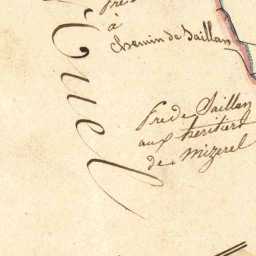 à
Chemin de Saillan
Pré de Saillan
aux heritiers
de Mizerel